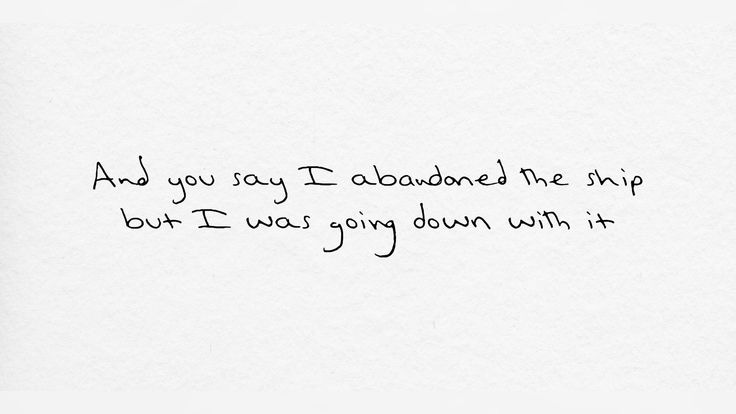 And you say I abandoned the ship
but I was going down with it